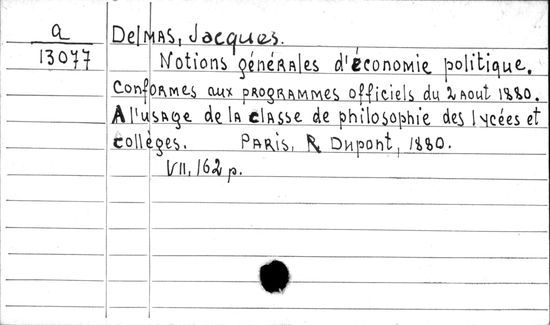 a
13077
Delmas, Jacques.
Notions générales d'économie politique.
Conformes aux programmes officiels du 2 aout 1880.
A l'usage de la classe de philosophie des lycées et
collèges. Paris, P. Dupont, 1880.
VII, 162 p.